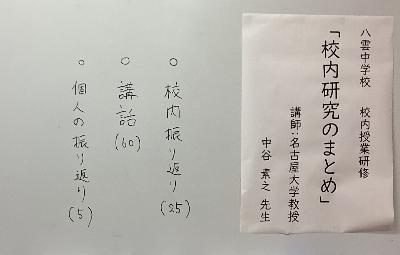 八雲中学校　校内授業研修
「校内研究のまとめ」
講師:名古屋大学教授
中谷 素之 先生
○ 校内振り返り(25)
○ 講話(60)
○ 個人の振り返り(5)